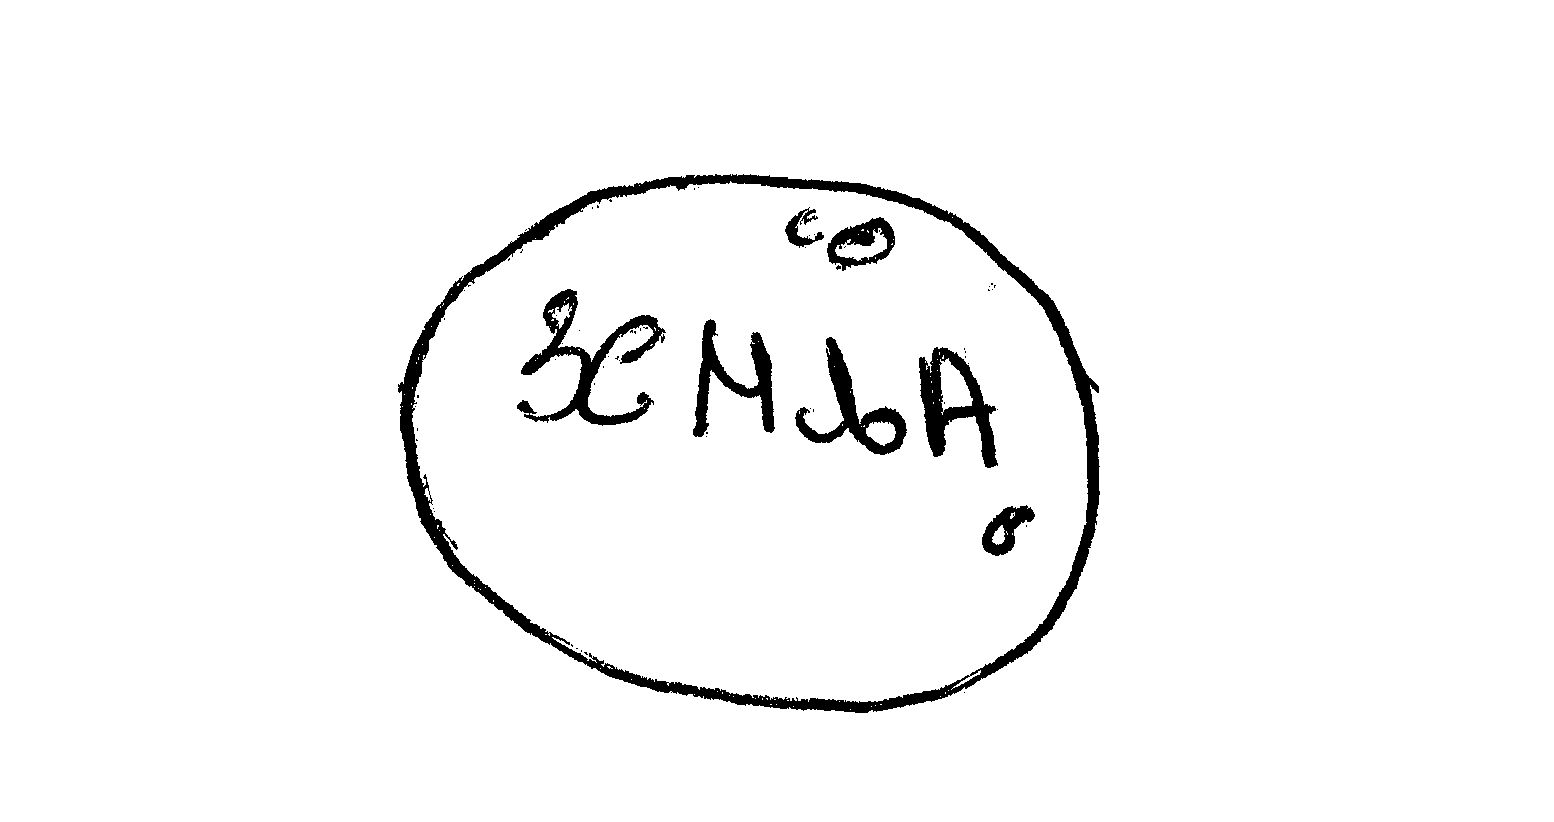 ЗЕМЉА